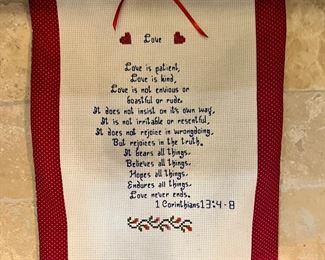 Love
Love is patient,
Love is kind,
Love is not envious or
boastful or rude.
It does not insist on its own way,
It is not irritable or resentful,
It does not rejoice in wrongdoing,
But rejoices in the truth.
It bears all things.
Believes all things.
Hopes all things.
Endures all things.
Love never ends.
1 Corinthians 13:4-8